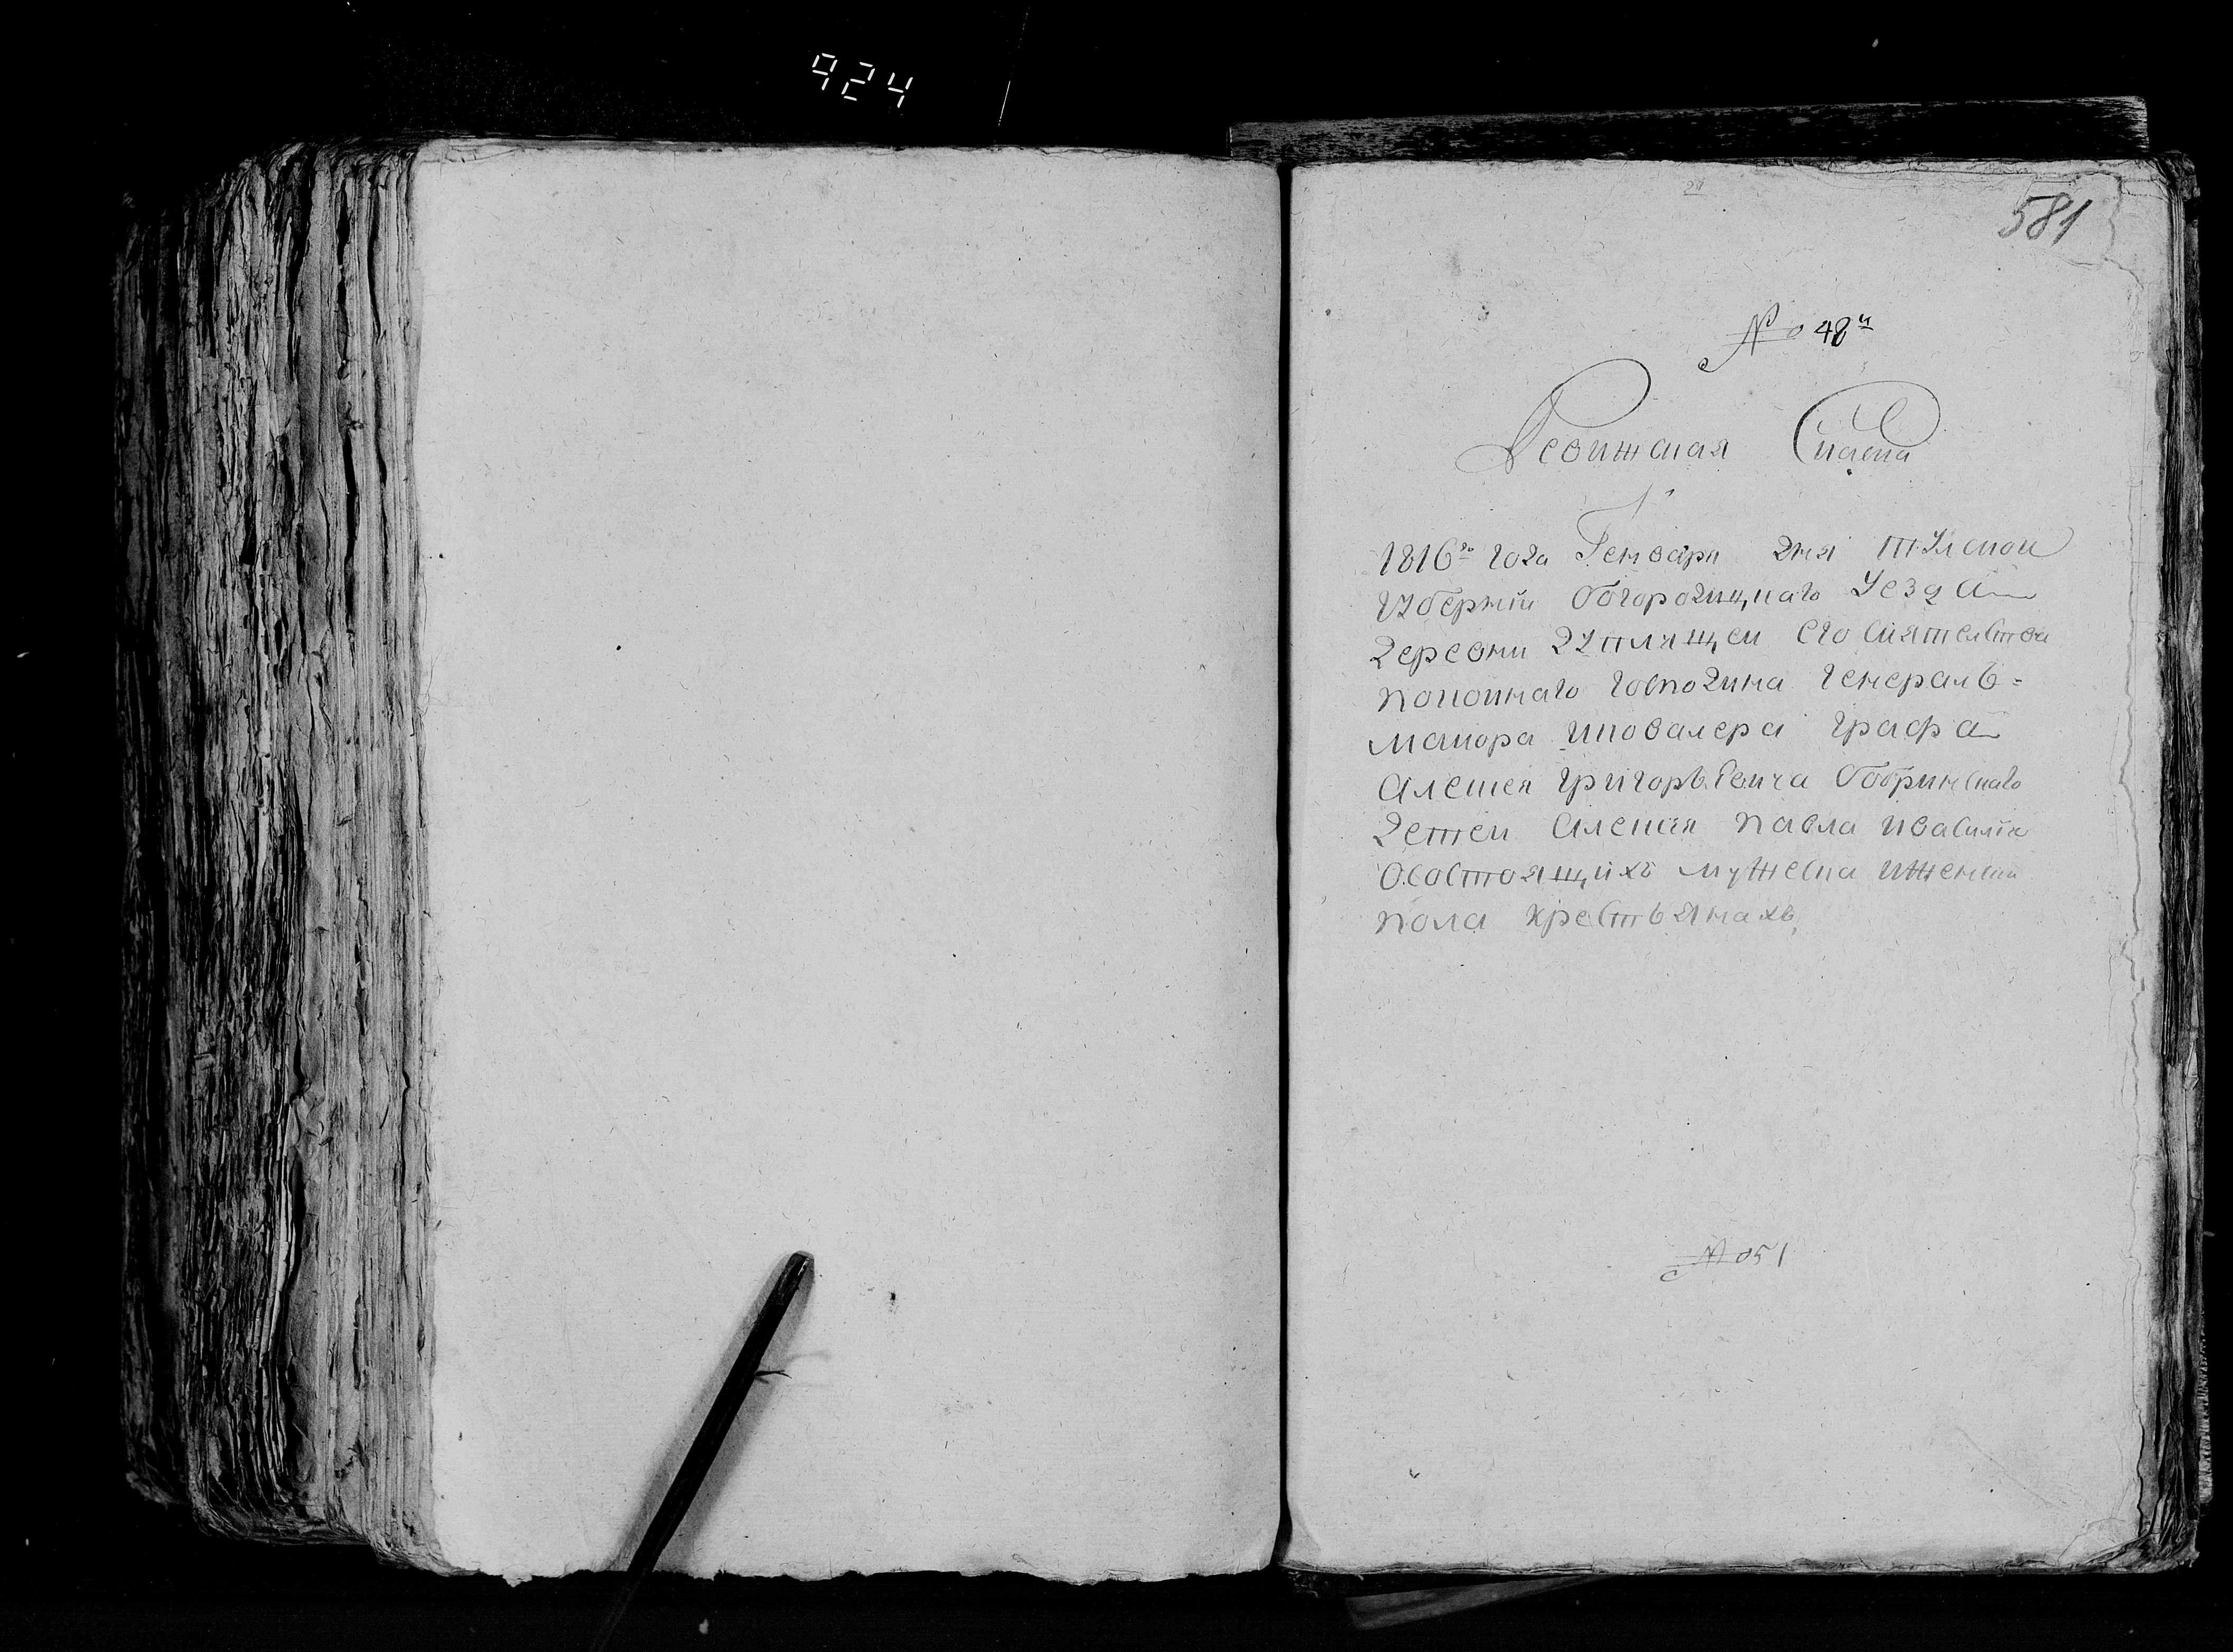 924
581
№ 48й
Ревижская Сказка
1816го года Генваря дня Тулской
губернии богородицкаго уезда
деревни дуплищей его сиятелства
покоинаго господина генералъ=
маиора иковалера графа
алексея григорьевича бобринскаго
детей алексея павла ивасилия
осостоящихъ мужеска иженска
пола крестьянахъ,
№ 51